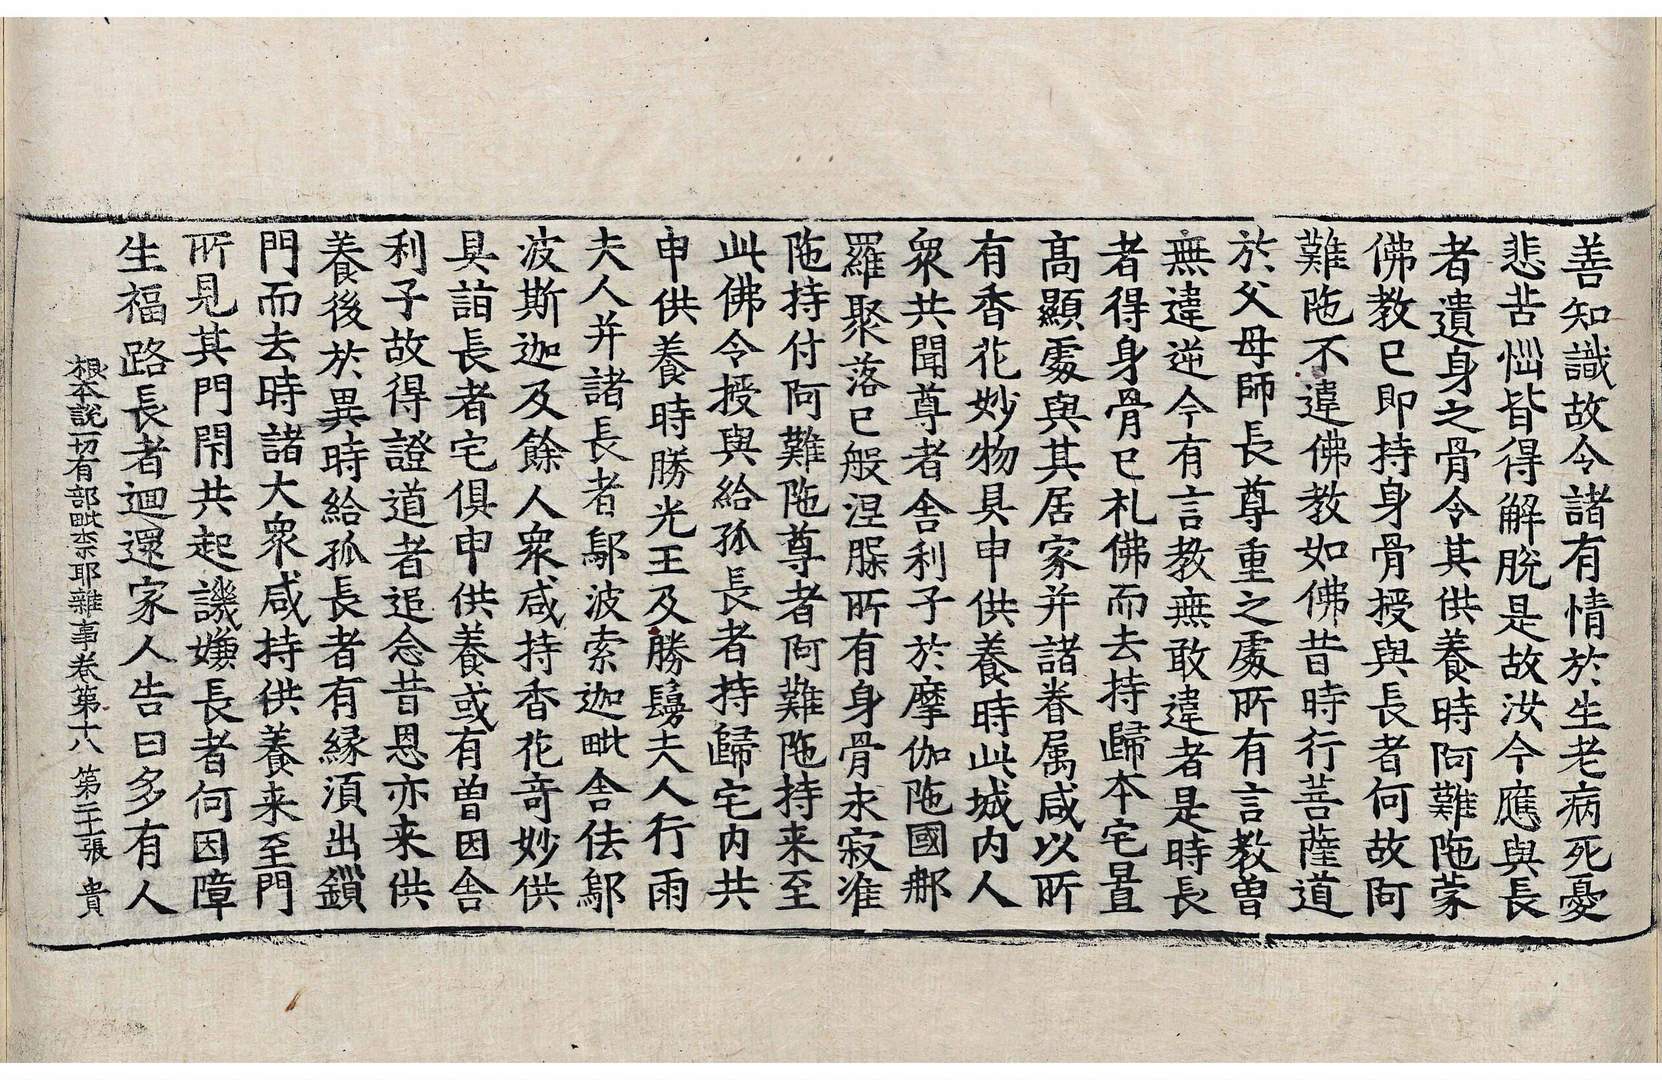 善知識故令諸有情於生老病死憂
悲苦惱皆得解脫是故汝今應與長
者遺身之骨令其供養時阿難陁蒙
佛教已即持身骨授與長者何故阿
難陁不違佛教如佛昔時行菩薩道
於父母師長尊重之處所有言教曾
無違逆今有言教無敢違者是時長
者得身骨已礼佛而去持歸本宅置
高顯處與其居家并諸眷属咸以所
有香花妙物具申供養時此城内人
衆共聞尊者舍利子於摩伽陁國那
羅聚落已般涅槃所有身骨求寂准
陁持付阿難陁尊者阿難陁持来至
此佛令授與給孤長者持歸宅内共
申供養時勝光王及勝鬘夫人行雨
夫人并諸長者鄔波索迦毗舍佉鄔
波斯迦及餘人衆咸持香花奇妙供
具詣長者宅俱申供養或有曾因舍
利子故得證道者追念昔恩亦来供
養後於異時給孤長者有緣湏出鏁
門而去時諸大衆咸持供養来至門
所見其門閇共起譏嫌長者何因障
生福路長者迴還家人告曰多有人
根本說一切有部毗柰耶雜事卷第十八 第二十張 貴